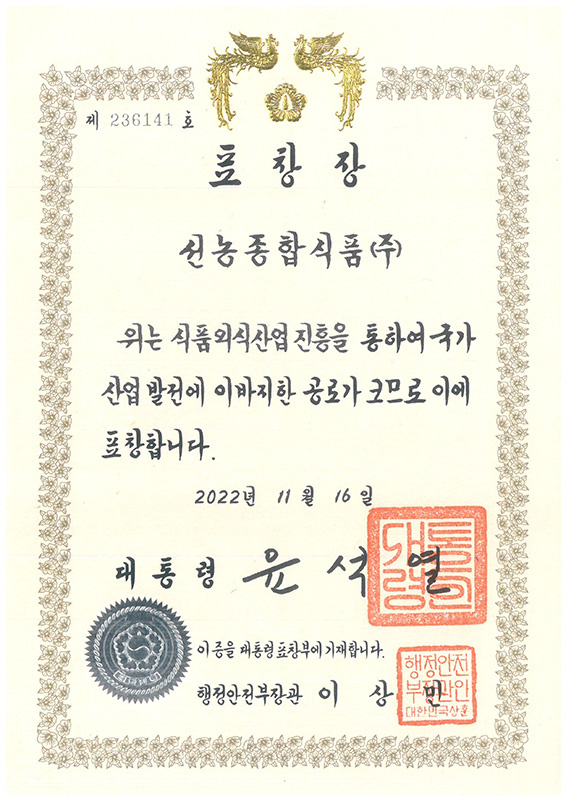 제 236141 호
표창장
신농종합식품(주)
위는 식품외식산업진흥을 통하여 국가
산업 발전에 이바지한 공로가 크므로 이에
표창합니다.
2022년 11월 16일
대통령 윤석열
대통령
이 증을 대통령표창부에 기재합니다.
행정안전부장관 이상민
행정안전
부장관인
대한민국상훈